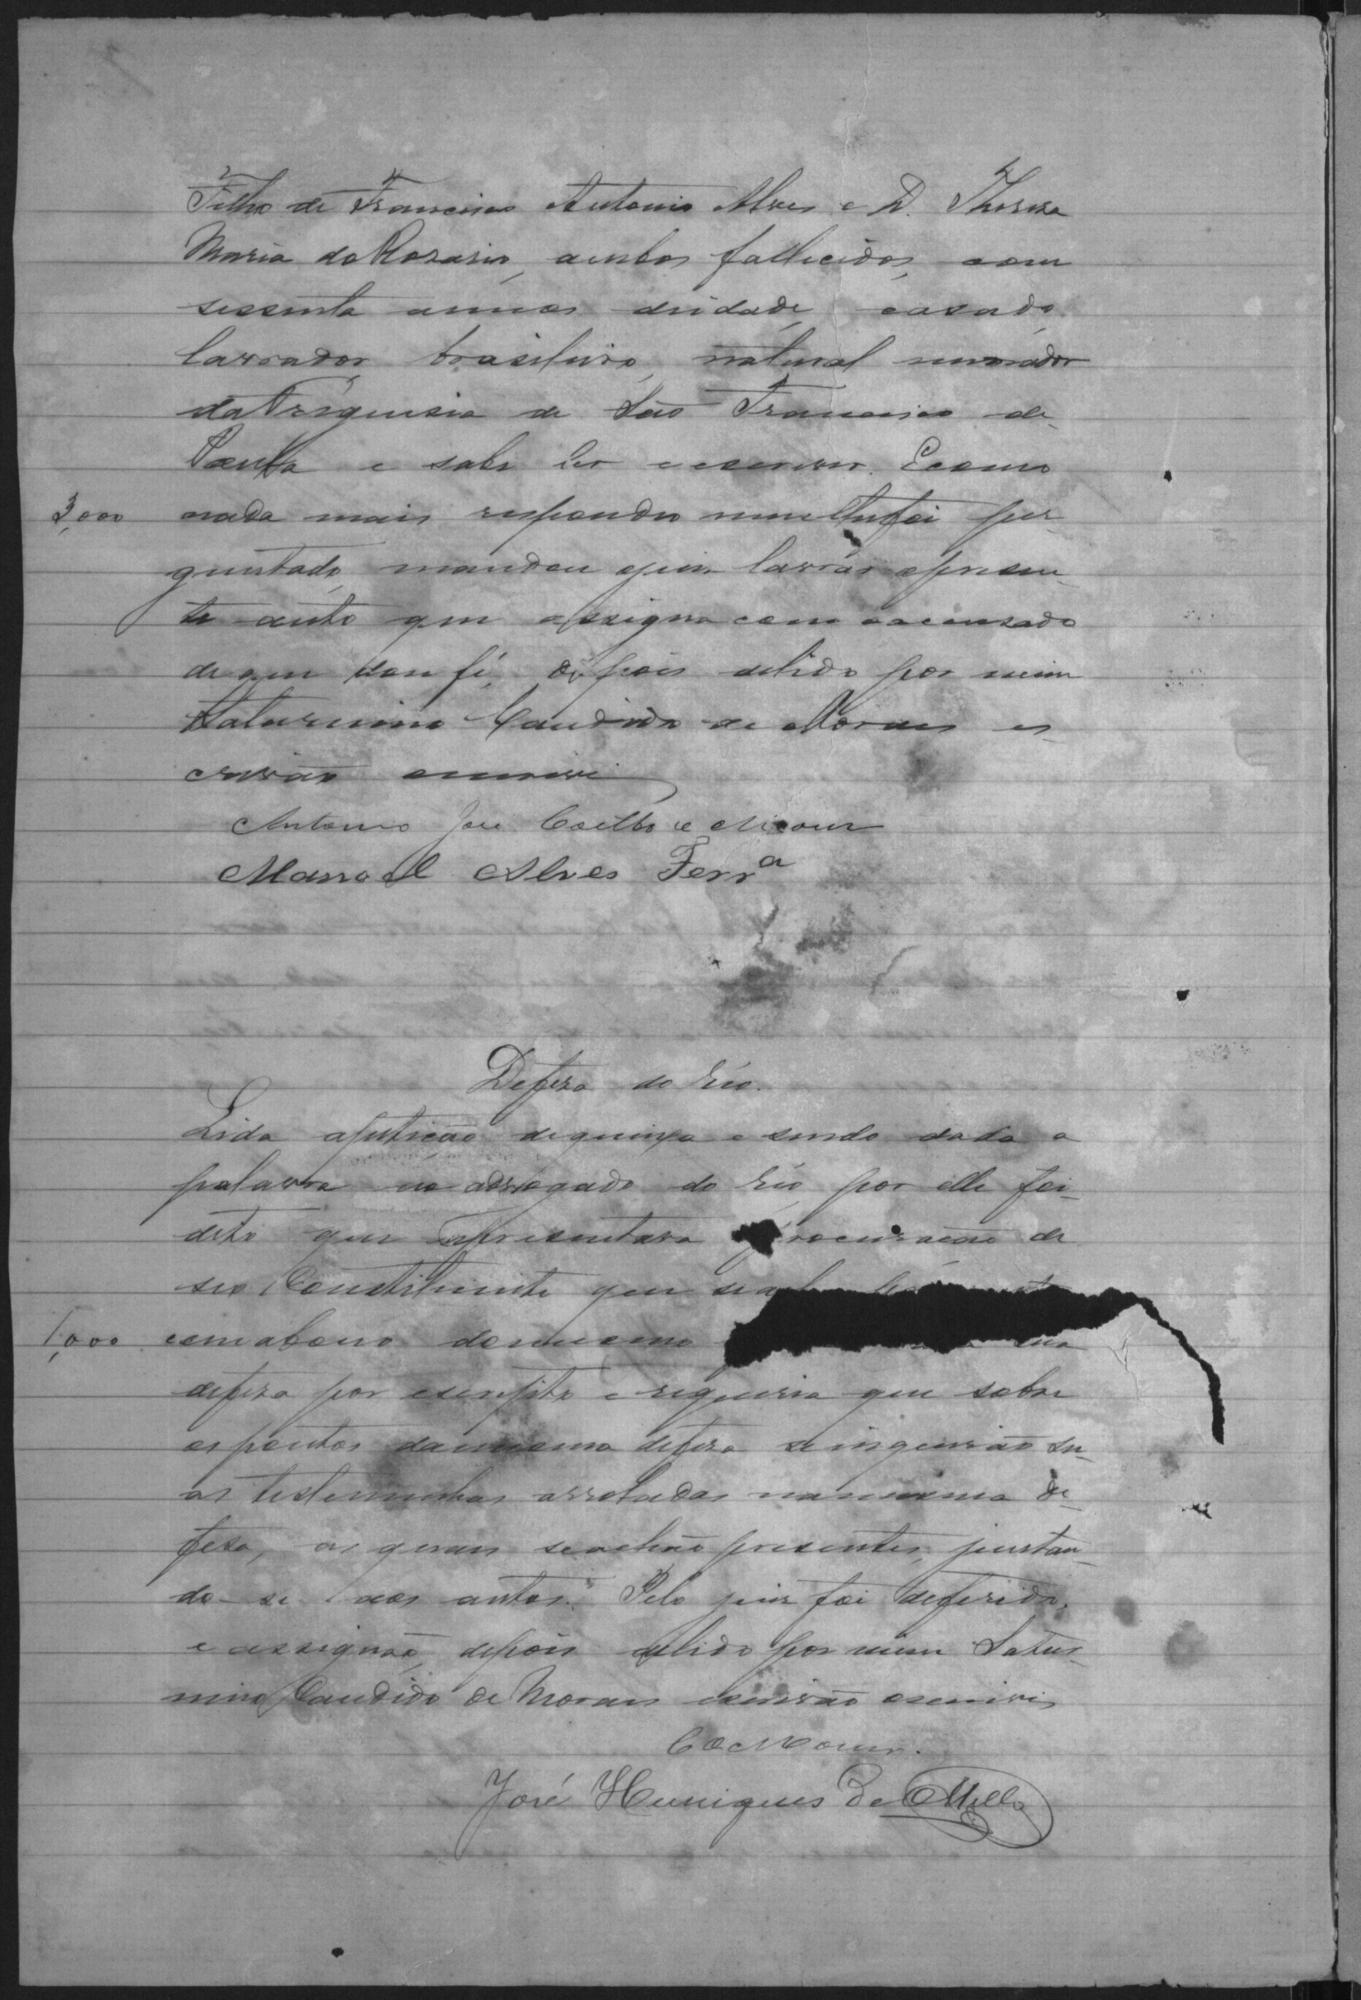 Filho de Francisco Antonio Alves e D. Thereza
Maria do Rosario, ambos fallecidos, com
sessenta annos de idade, casado,
lavrador brasileiro, natural morador
da Freguesia de São Francisco de
Paula e sabe ler e escrever. E como
3,000 nada mais respondeu nem lhe foi per
guntado, mandou o juiz lavrar o presen-
te auto que assigna com o accusado
de que dou fé, depois de lido por mim
Saturnino Candido de Moraes es-
crivão escrevi
Antonio José Coelho e
Manoel Alves Ferrª
Defeza do réo.
Lida a petição de queixa e sendo dada a
palavra ao advogado do réo por elle foi
dito que apresentava procuração de
seo Constituinte que
1,000 com abono do mesmo sua
defeza por escripto e requeria que sobre
os pontos da mesma defeza se inquirão su-
as testemunhas arroladas na mesma de-
feza, as quaes se achão presentes, juntan-
do-se aos autos. Pelo juiz foi deferido,
e assignão, depois de lido por mim Satur-
nino Candido de Moraes escrivão escrevi
José Henriques de Mello